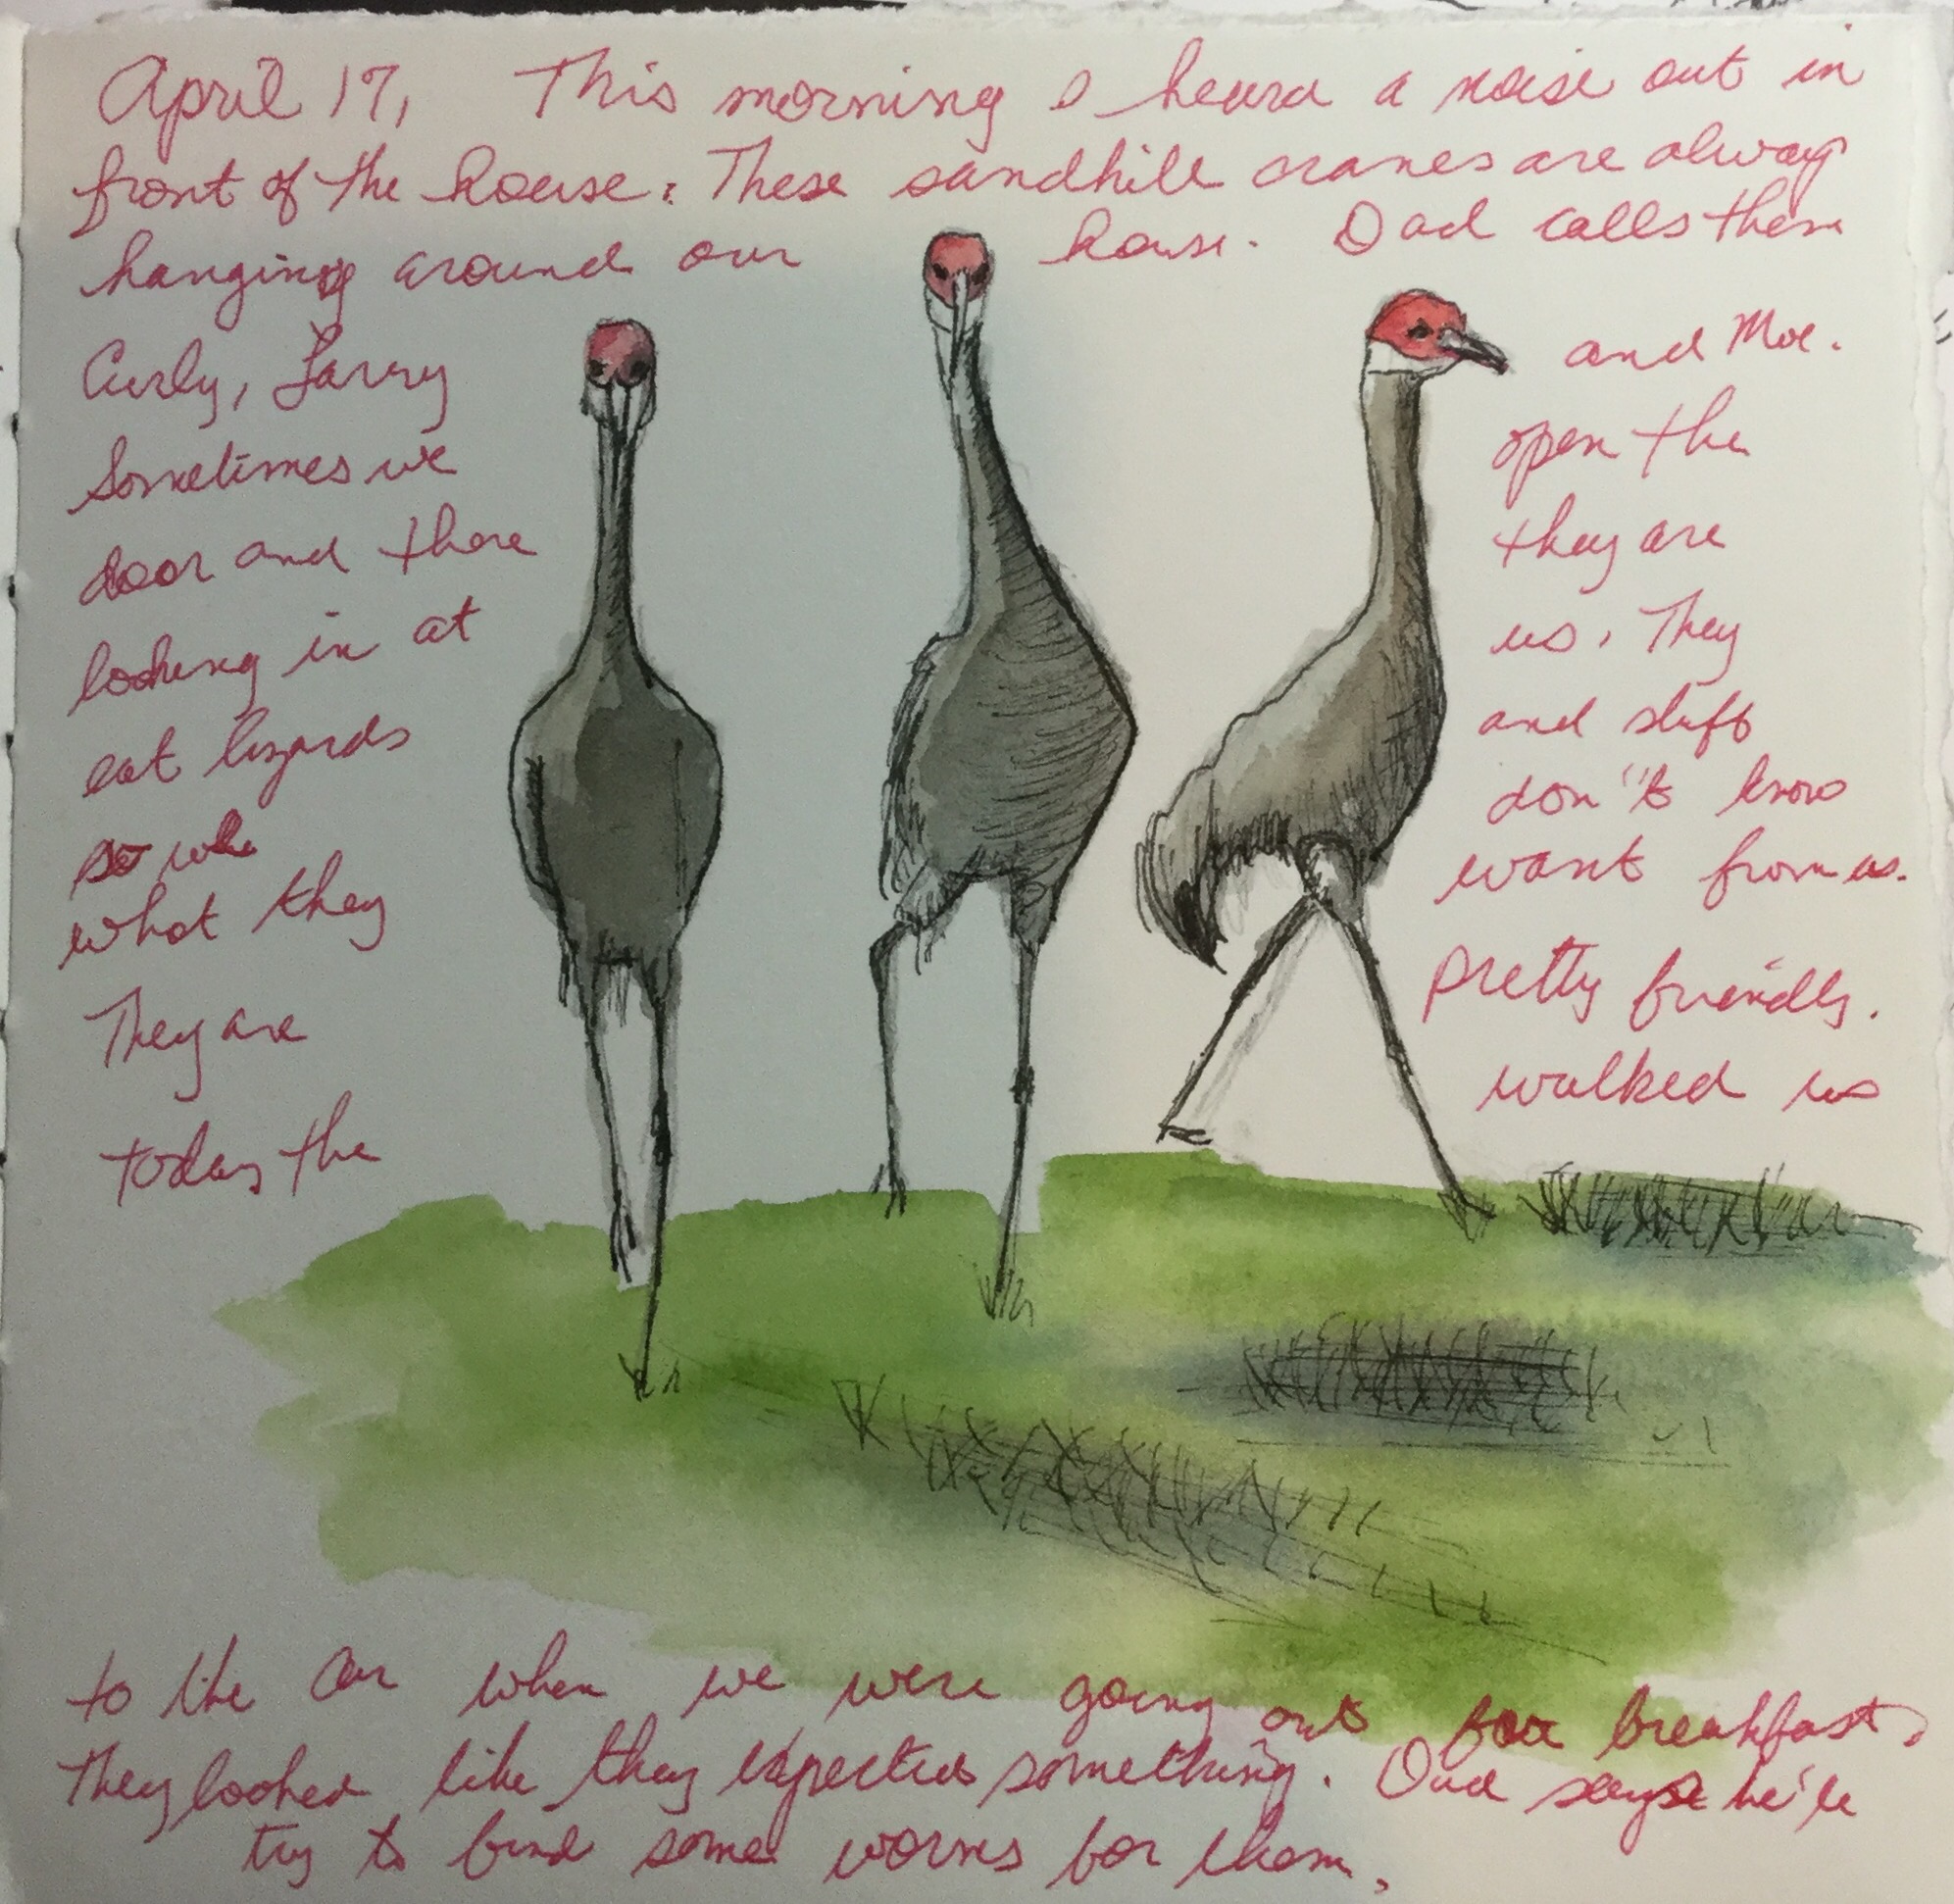 April 17, This morning I heard a noise out in
front of the house. These sandhill cranes are always
hanging around our house. Dad calls them
Curly, Larry and Moe.
Sometimes we open the
door and there they are
looking in at us. They
eat lizards and stuff
so who don't know
what they want from us.
They are pretty friendly.
today the walked us
to the car when we were going out for breakfast.
They looked like they expected something. Dad says he'll
try to find some worms for them.